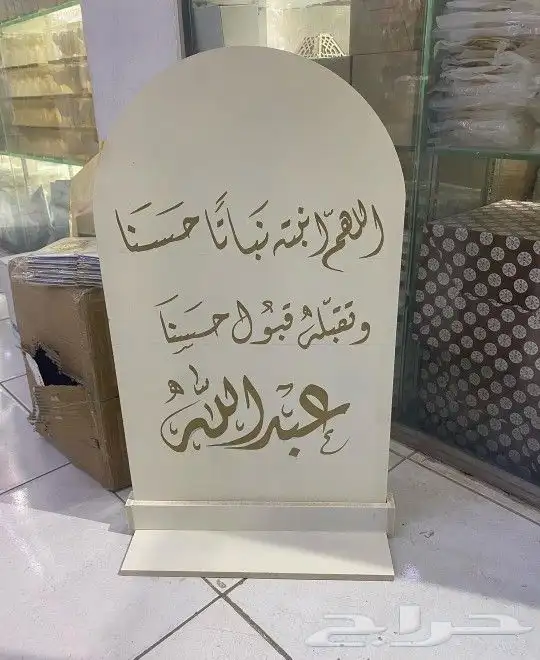 اللهمّ انبته نَبَاتًا حَسَنَا
وتقبّلهُ قبُول حسَنِاَ
عبدالله
حراج